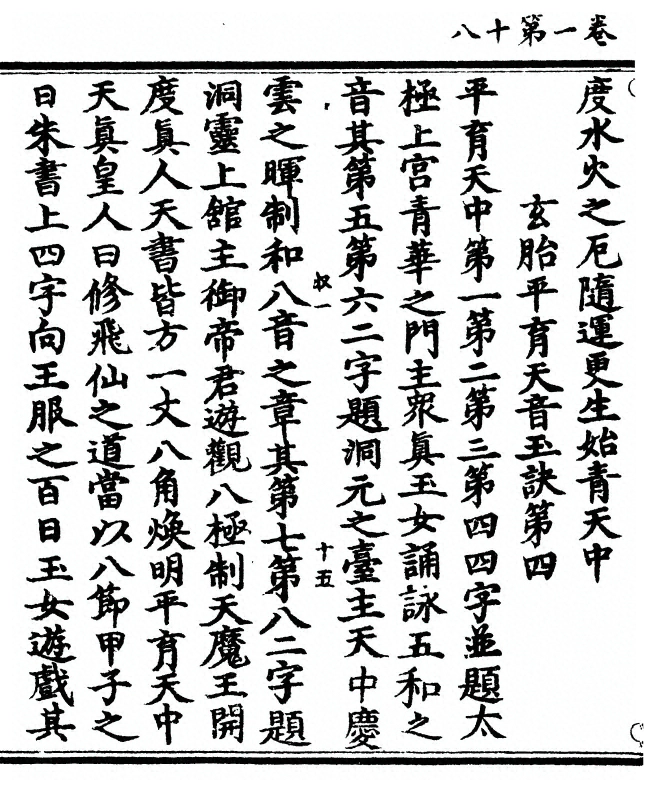 卷一第十八
度水火之厄隨運更生始青天中
玄胎平育天音玉訣第四
平育天中第一第二第三第四四字並題太
極上宮青華之門主衆真玉女誦詠五和之
音其第五第六二字題洞元之臺主天中慶
叔一
十五
雲之暉制和八音之章其第七第八二字題
洞靈上舘主御帝君遊觀八極制天魔王開
度眞人天書皆方一丈八角煥明平育天中
天眞皇人曰修飛仙之道當以八節甲子之
日朱書上四字向王服之百日玉女遊戲其